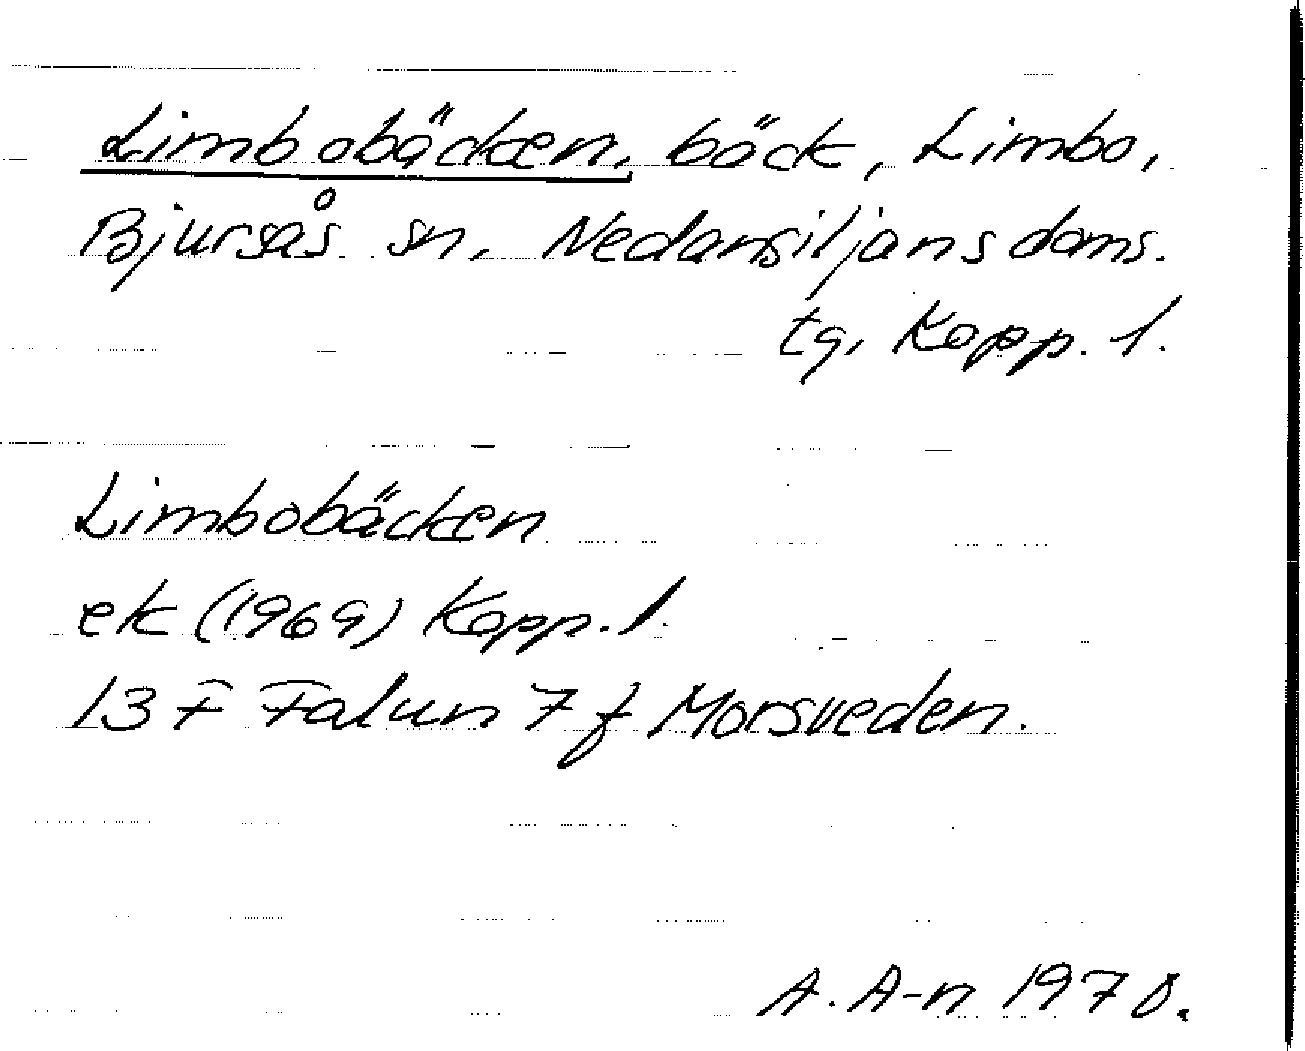 Limbobäcken, bäck, Limbo,
Bjursås sn, Nedansiljans doms.
tg, Kopp. l.
Limbobäcken
ek (1969) Kopp. l.
13 F Falun 7 f Morsveden.
A. A-n 1970.